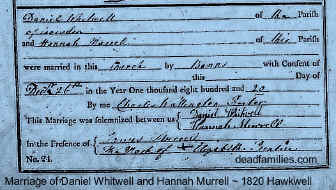 Daniel Whitwell of this Parish
of
and Hannah Murrell of this Parish
were married in this Church by Banns with Consent of
this Day of
in the Year One thousand eight hundred and 20
By me Charles Wallington
This Marriage was solemnized between us { Daniel Whitwell
Hannah Murrell
In the Presence of { James Murrell
The Mark of X Elizabeth
No. 21.
deadfamilies.com
Marriage of Daniel Whitwell and Hannah Murrell ~ 1820 Hawkwell